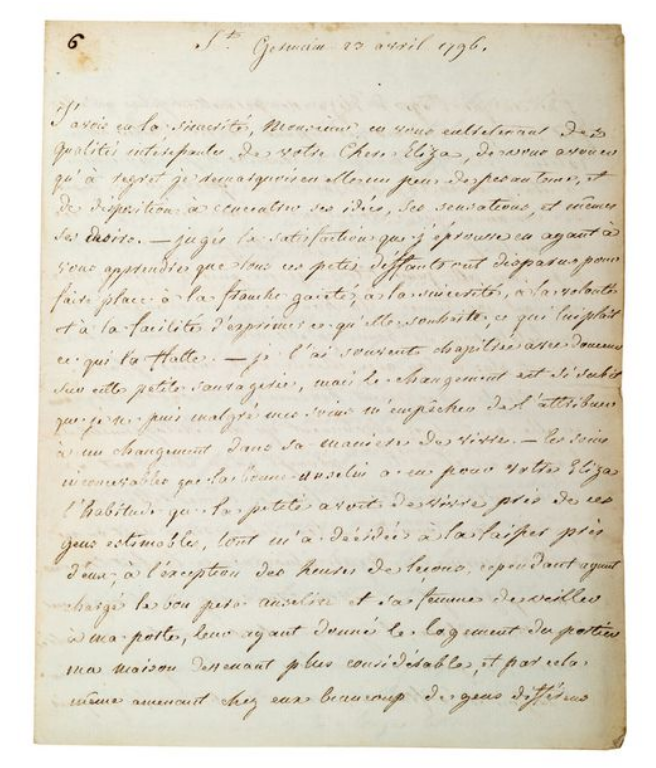 6
St. Germain 23 avril 1796.
J'avois eu la sincerité, Monsieur, en vous entretenant des
qualités interessantes de votre chere Eliza, de vous avouer
qu'à regret je remarquois en elle un peu de pesanteur, et
de disposition à concentrer ses idées, ses sensations, et même
ses desirs. — jugés la satisfaction que j'éprouve en ayant à
vous apprendre que tous ces petits deffauts ont disparus pour
faire place à la franche gaieté, à la sincerité, à la volonté
et à la facilité d'exprimer ce qu'elle souhaite, ce qui lui plait
ce qui la flatte. — je l'ai souvent chapitrée avec douceur
sur cette petite sauvagerie, mais le changement est si subit
que je ne puis malgré mes soins m'empêcher de l'attribuer
à un changement dans sa maniere de vivre. — les soins
inconcevables que la bonne anselin a eu pour votre Eliza
l'habitude que la petite avoit de vivre près de ces
gens estimables, tout m'a décidée à la laisser près
d'eux, à l'exception des heures de leçons, cependant ayant
chargé le bon pere anselin et sa femme de veiller
à ma porte, leur ayant donné le logement du portier
ma maison devenant plus considérable, et par cela
même amenant chez eux beaucoup de gens différens